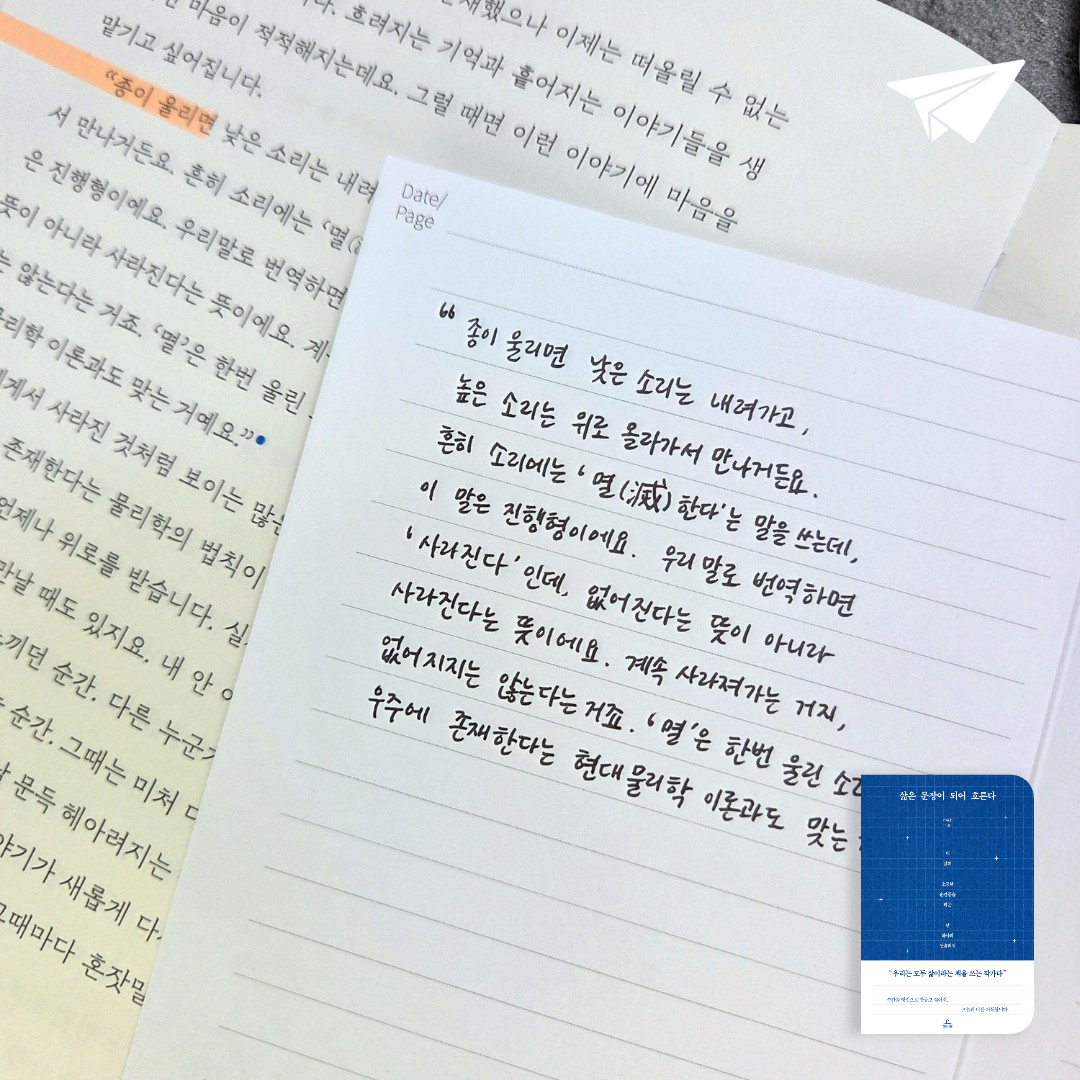 재했으나 이제는 떠올릴 수 없는
마음이 적적해지는데요. 흐려지는 기억과 흩어지는 이야기들을 생
맡기고 싶어집니다. 그럴 때면 이런 이야기에 마음을
“종이 울리면 낮은 소리는 내려
서 만나거든요. 흔히 소리에는 ‘멸(
은 진행형이에요. 우리말로 번역하면
뜻이 아니라 사라진다는 뜻이에요. 계
는 않는다는 거죠. ‘멸’은 한번 울린
물리학 이론과도 맞는 거예요.”
에게서 사라진 것처럼 보이는 많은
존재한다는 물리학의 법칙이
언제나 위로를 받습니다.
만날 때도 있지요. 내 안
느끼던 순간. 다른 누군가
순간. 그때는 미처
문득 헤아려지는
야기가 새롭게 다
그때마다 혼잣말
Date/
Page
“종이 울리면 낮은 소리는 내려가고,
높은 소리는 위로 올라가서 만나거든요.
흔히 소리에는 ‘멸(滅)한다’는 말을 쓰는데,
이 말은 진행형이에요. 우리말로 번역하면
‘사라진다’인데, 없어진다는 뜻이 아니라
사라진다는 뜻이에요. 계속 사라져가는 거지,
없어지지는 않는다는 거죠. ‘멸’은 한번 울린 소
우주에 존재한다는 현대물리학 이론과도 맞는
삶은 문장이 되어 흐른다
“우리는 모두 삶이라는 책을 쓰는 작가다”